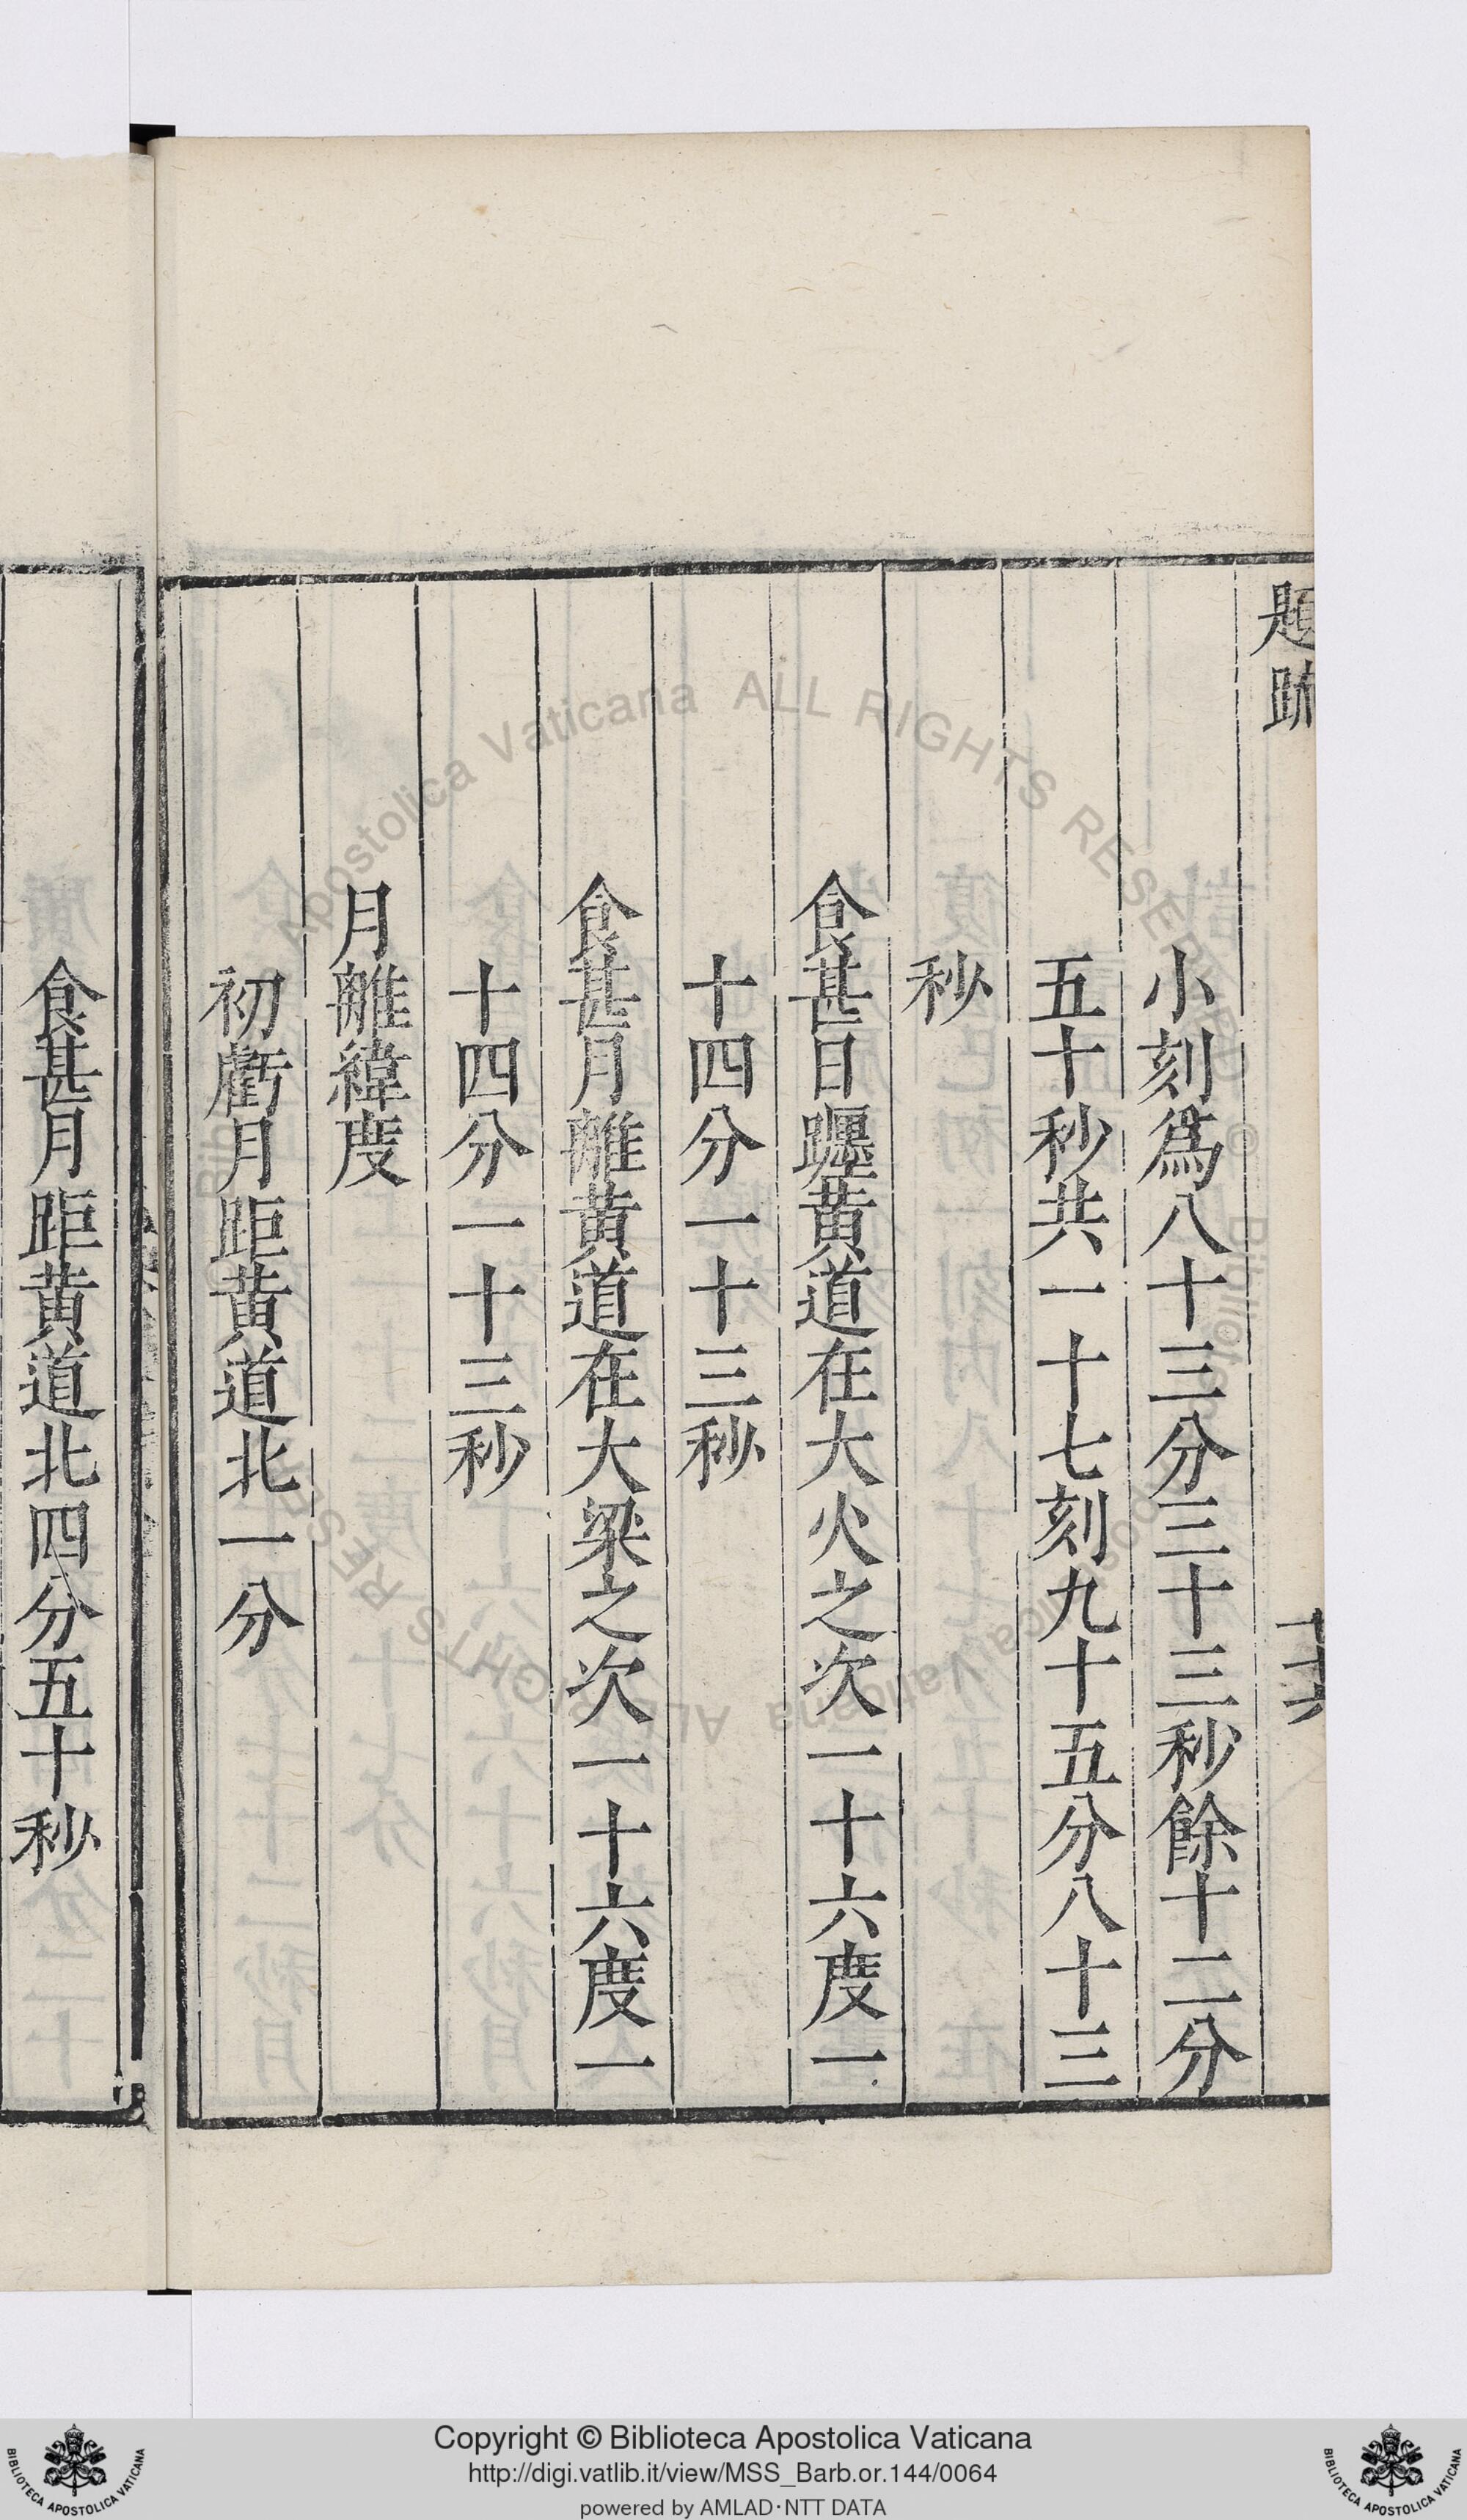 題疏
十六
小刻爲八十三分三十三秒餘十二分
五十秒共一十七刻九十五分八十三
秒
食甚日躔黃道在大火之次一十六度一
十四分一十三秒
食甚月離黃道在大梁之次一十六度一
十四分一十三秒
月離緯度
初虧月距黃道北一分
食甚月距黃道北四分五十秒
Copyright © Biblioteca Apostolica Vaticana
http://digi.vatlib.it/view/MSS_Barb.or.144/0064
powered by AMLAD·NTT DATA